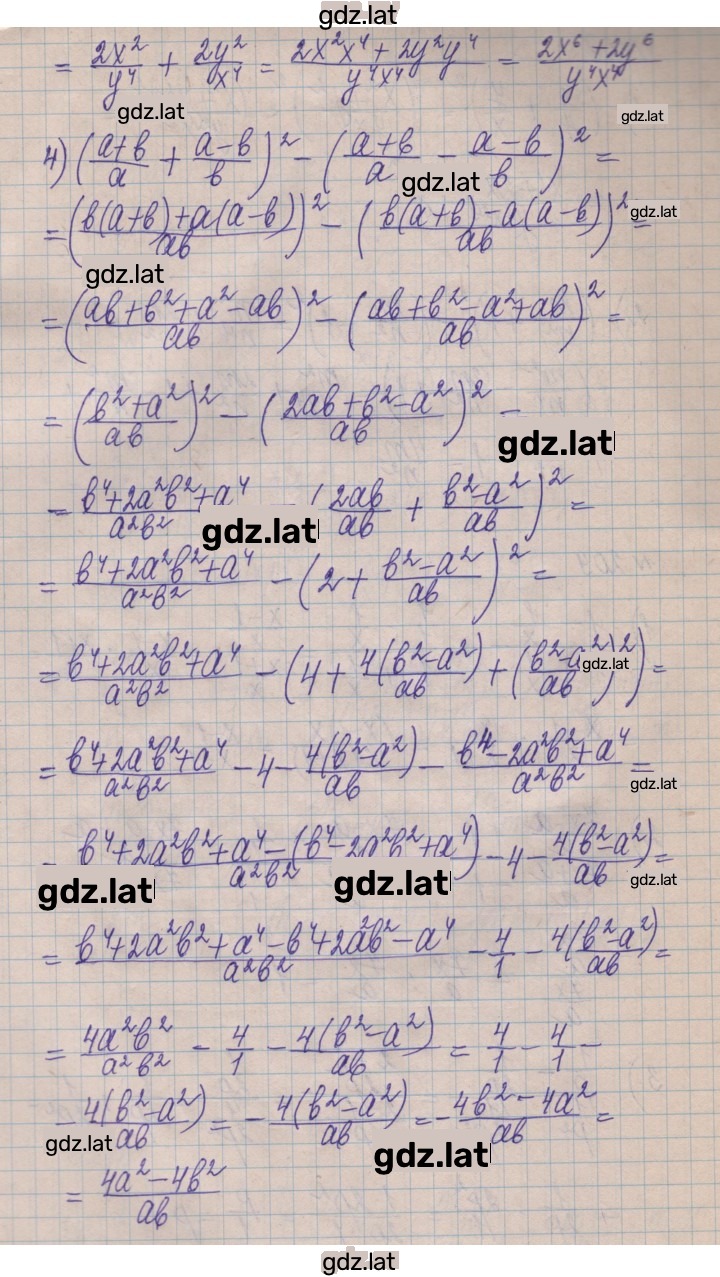 gdz.lat
= 2x²/y⁴ + 2y²/x⁴ = (2x²x⁴ + 2y²y⁴)/(y⁴x⁴) = (2x⁶ + 2y⁶)/(y⁴x⁴)
gdz.lat gdz.lat
4) ((a+b)/a + (a-b)/b)² - ((a+b)/a - (a-b)/b)² =
gdz.lat
= ((b(a+b)+a(a-b))/ab)² - ((b(a+b)-a(a-b))/ab)² =
gdz.lat
gdz.lat
= ((ab+b²+a²-ab)/ab)² - ((ab+b²-a²+ab)/ab)² =
= ((b²+a²)/ab)² - ((2ab+b²-a²)/ab)² -
gdz.lat
= (b⁴+2a²b²+a⁴)/(a²b²) - (2ab/ab + (b²-a²)/ab)² =
gdz.lat
= (b⁴+2a²b²+a⁴)/(a²b²) - (2 + (b²-a²)/ab)² =
= (b⁴+2a²b²+a⁴)/(a²b²) - (4 + 4(b²-a²)/ab + ((b²-a²)/ab)²) =
gdz.lat
= (b⁴+2a²b²+a⁴)/(a²b²) - 4 - 4(b²-a²)/ab - (b⁴-2a²b²+a⁴)/(a²b²) =
gdz.lat
- (b⁴+2a²b²+a⁴-(b⁴-2a²b²+a⁴))/(a²b²) - 4 - 4(b²-a²)/ab =
gdz.lat gdz.lat gdz.lat
= (b⁴+2a²b²+a⁴-b⁴+2a²b²-a⁴)/(a²b²) - 4/1 - 4(b²-a²)/ab =
= 4a²b²/(a²b²) - 4/1 - 4(b²-a²)/ab = 4/1 - 4/1 -
- 4(b²-a²)/ab = - 4(b²-a²)/ab = - (4b²-4a²)/ab =
gdz.lat gdz.lat
= (4a²-4b²)/ab
gdz.lat